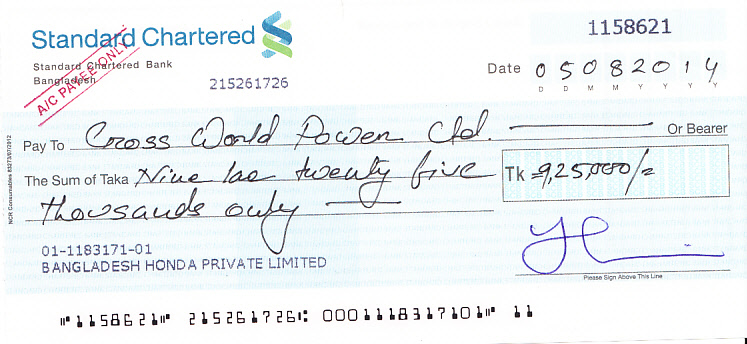 1158621
Standard Chartered
Standard Chartered Bank
Bangladesh
A/C PAYEE ONLY
215261726
Date 05082014
D D M M Y Y Y Y
Pay To Cross World Power Ltd. Or Bearer
The Sum of Taka Nine lac twenty five
Tk =9,25,000/=
thousands only
01-1183171-01
BANGLADESH HONDA PRIVATE LIMITED
Please Sign Above This Line
NCR Consumables
⑈1158621⑈ 215261726⑆ 0001118317101⑈ 11